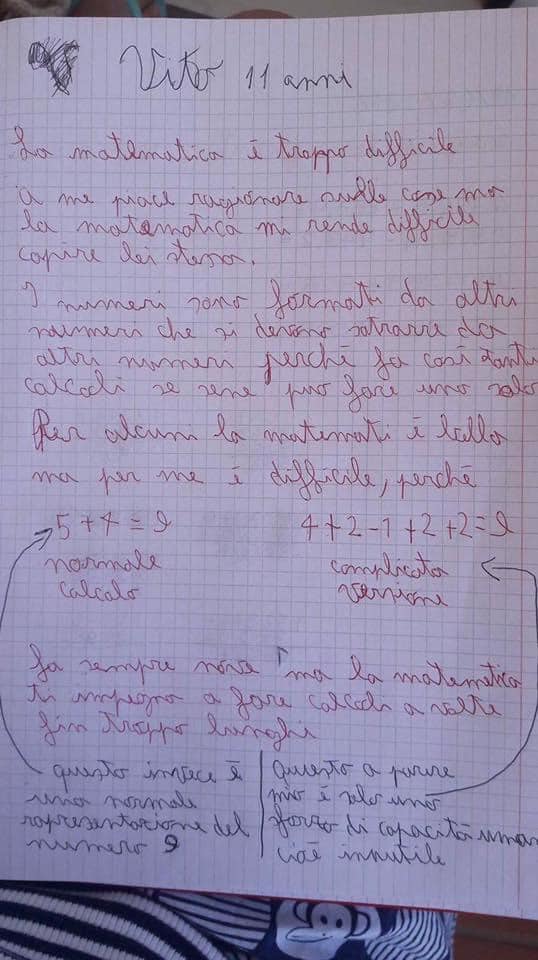 Vito 11 anni
La matematica è troppo difficile
a me piace ragionare sulle cose ma
la matematica mi rende difficile
capire lei stessa.
I numeri sono formati da altri
numeri che si devono sotrarre da
altri numeri perchè fa così tanti
calcoli se sene può fare uno solo
Per alcuni la matemati è bella
ma per me è difficile, perchè
5+4=9 4+2-1+2+2=9
normale complicata
calcolo versione
fa sempre nove ma la matemetica
ti impegna a fare calcoli a volte
fin troppo lunghi
questo invece è
una normale
rapresentazione del
numero 9
Questo a parere
mio è solo uno
sforzo di capacità uman
cioè innutile